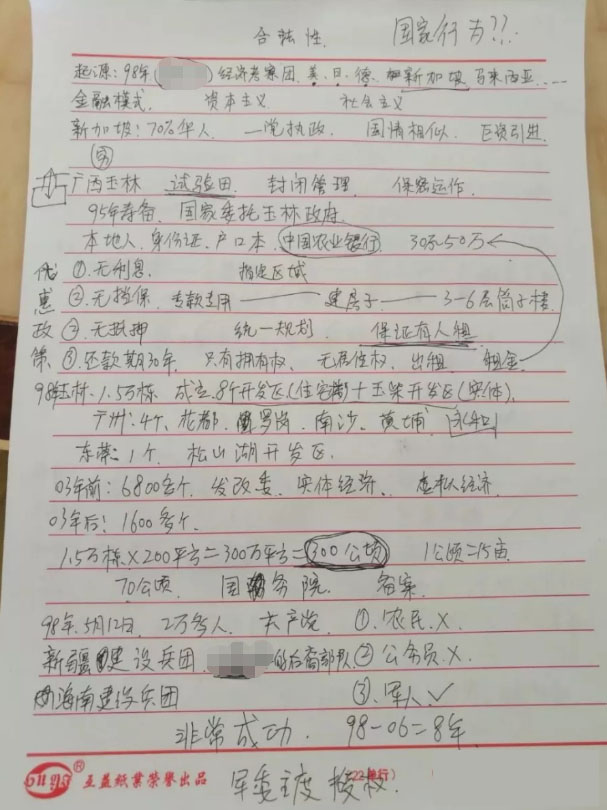 合法性. 国家行为??.
起源: 98年( )经济考察团. 美. 日. 德. 新加坡. 马来西亚.....
金融模式. 资本主义 社会主义
新加坡: 70%华人. 一党执政. 国情相似. 巨资引进.
广西玉林 试验田. 封闭管理. 保密运作.
95年筹备. 国家委托玉林政府.
本地人. 身份证. 户口本. 中国农业银行. 30万~50万
优惠政策
①. 无利息. 指定区域
②. 无担保. 专款专用 —— 建房子 —— 3-6层筒子楼.
③. 无抵押 统一规划. 保证有人租
③. 还款期30年. 只有拥有权. 无居住权. 出租. 租金
98年玉林. 1.5万栋. 成立. 8个开发区(住宅) + 玉柴开发区(实体).
广州: 4个. 花都. 罗岗. 南沙. 黄埔.
东莞: 1个. 松山湖开发区.
03年前: 6800多个. 发改委. 实体经济. 虚拟经济.
03年后: 1600多个.
1.5万栋×200平方=300万平方=300公顷 1公顷=15亩.
70公顷. 国务院. 备案.
98年. 5月12日. 2万多人. 共产党. ①. 农民. ×
新疆建设兵团. 的后裔部队 ②. 公务员. ×.
海南建设兵团 ③. 军人. ✓
非常成功. 98-06=8年.
互益纸业荣誉出品
军委主度授权.